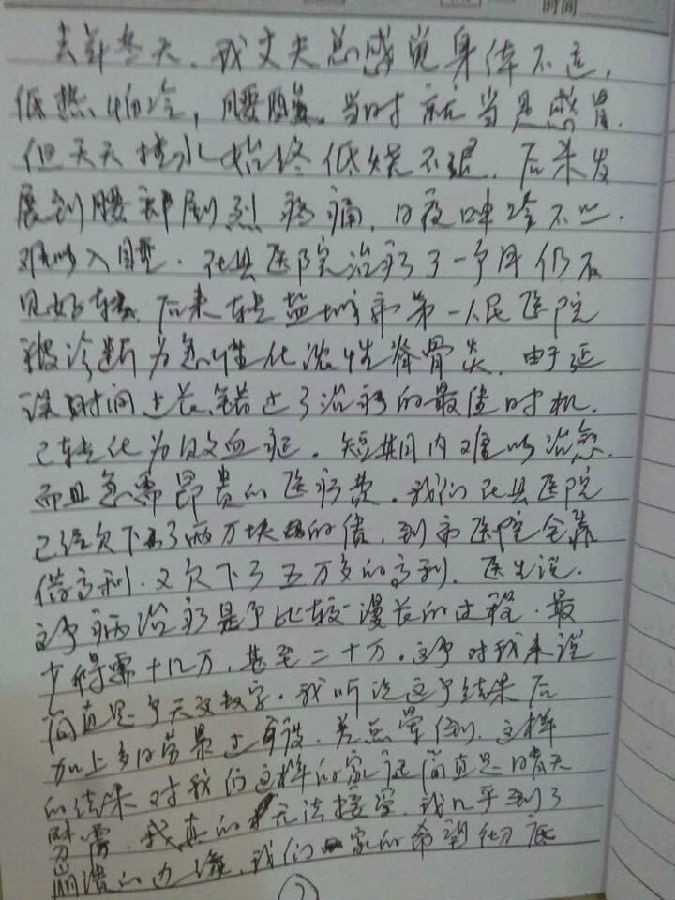 时间
去年冬天,我丈夫总感觉身体不适,
低热、怕冷,腰酸。当时就当是感冒.
但天天挂水始终低烧不退.后来发
展到腰部剧烈疼痛.日夜呻吟不止.
难以入睡.在县医院治疗了一个月仍不
见好转.后来转盐城市第一人民医院
被诊断为急性化浓性脊骨炎.由于延
误时间过长.错过了治疗的最佳时机.
已转化为败血症。短期内难以治愈.
而且急需昂贵的医疗费.我们在县医院
已经欠下了两万块的债,到市医院全靠
借高利.又欠下了五万多的高利.医生说.
这个病治疗是个比较漫长的过程.最
少得需十几万,甚至二十万。这个对我来说
简直是个天文数字.我听说这个结果后
加上多日劳累过度.差点晕倒.这样
的结果对我们这样的家庭简直是晴天
霹雳.我真的无法接受.我几乎到了
崩溃的边缘,我们一家的希望彻底
2